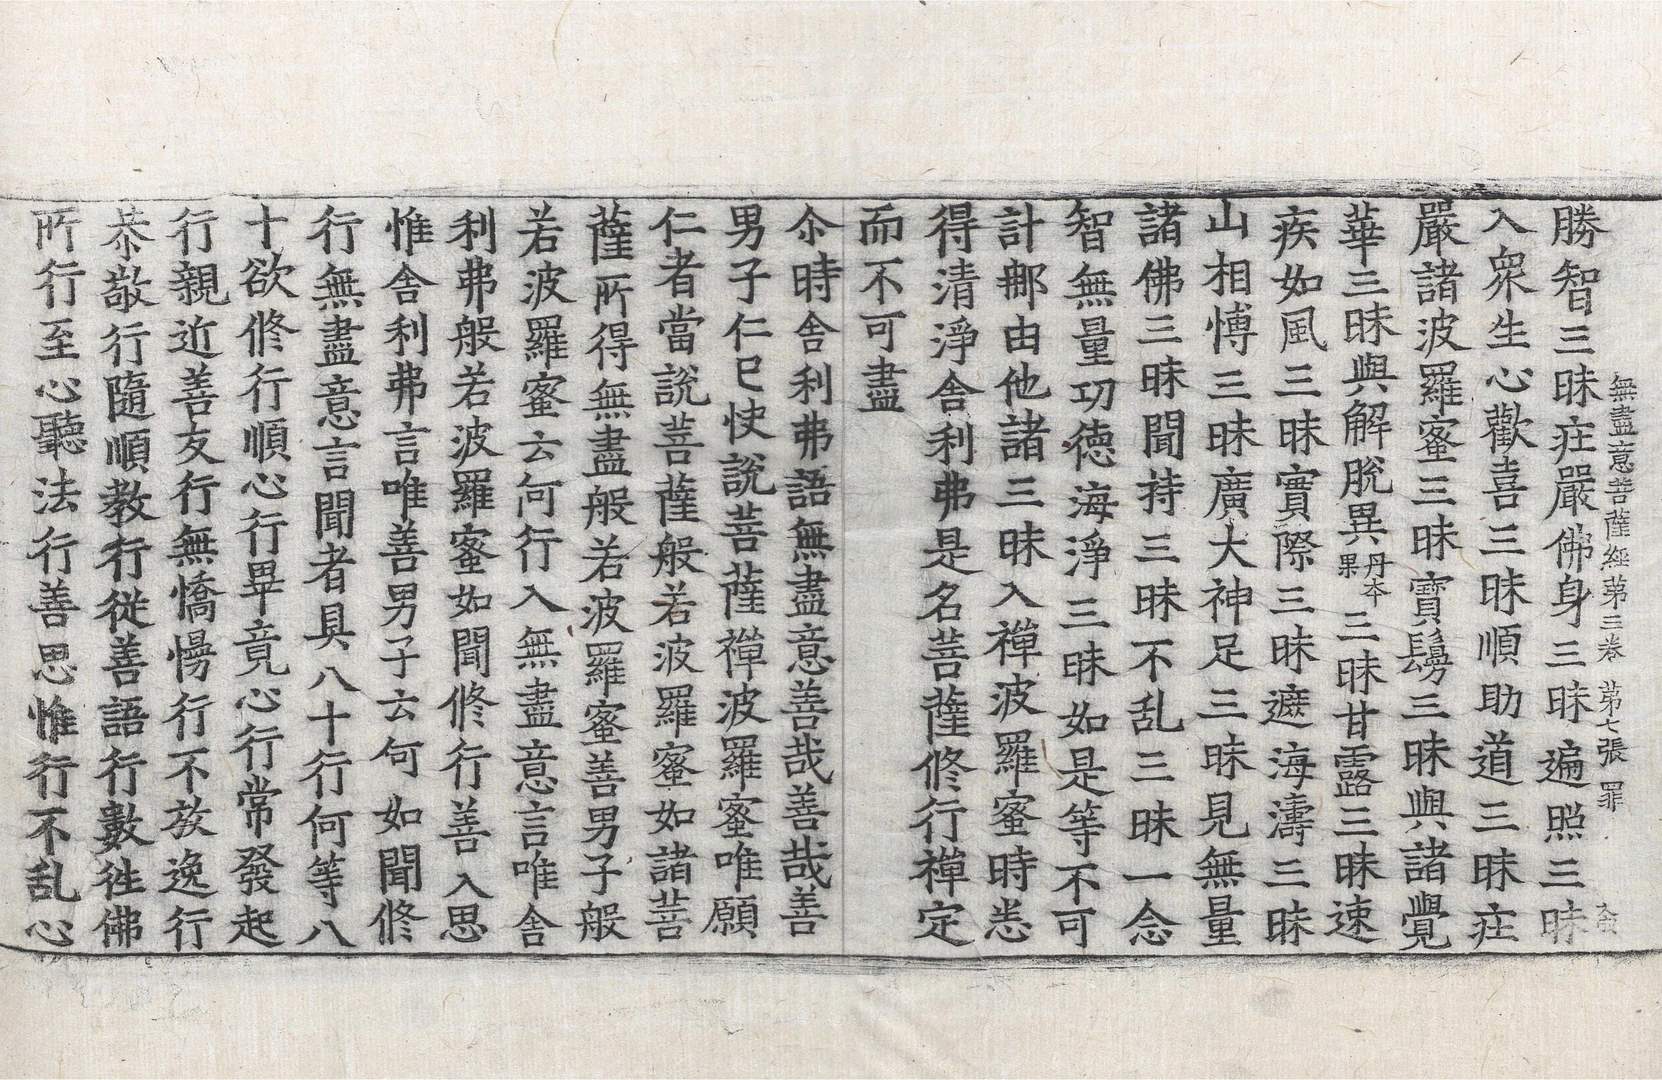 無盡意菩薩經第三卷 第七張 罪
勝智三昧庄嚴佛身三昧遍照三昧
入衆生心歡喜三昧順助道三昧庄
嚴諸波羅蜜三昧寶鬘三昧與諸覺
華三昧與解脫異丹夲果三昧甘露三昧速
疾如風三昧實際三昧遮海濤三昧
山相慱三昧廣大神足三昧見無量
諸佛三昧聞持三昧不乱三昧一念
智無量功德海淨三昧如是等不可
計那由他諸三昧入禪波羅蜜時悉
得清淨舎利弗是名菩薩修行禪定
而不可盡
尒時舎利弗語無盡意善哉善哉善
男子仁已快說菩薩禪波羅蜜唯願
仁者當說菩薩般若波羅蜜如諸菩
薩所得無盡般若波羅蜜善男子般
若波羅蜜云何行入無盡意言唯舎
利弗般若波羅蜜如聞修行善入思
惟舎利弗言唯善男子云何如聞修
行無盡意言聞者具八十行何等八
十欲修行順心行畢竟心行常發起
行親近善友行無憍慢行不放逸行
恭敬行隨順教行從善語行數徃佛
所行至心聽法行善思惟行不乱心